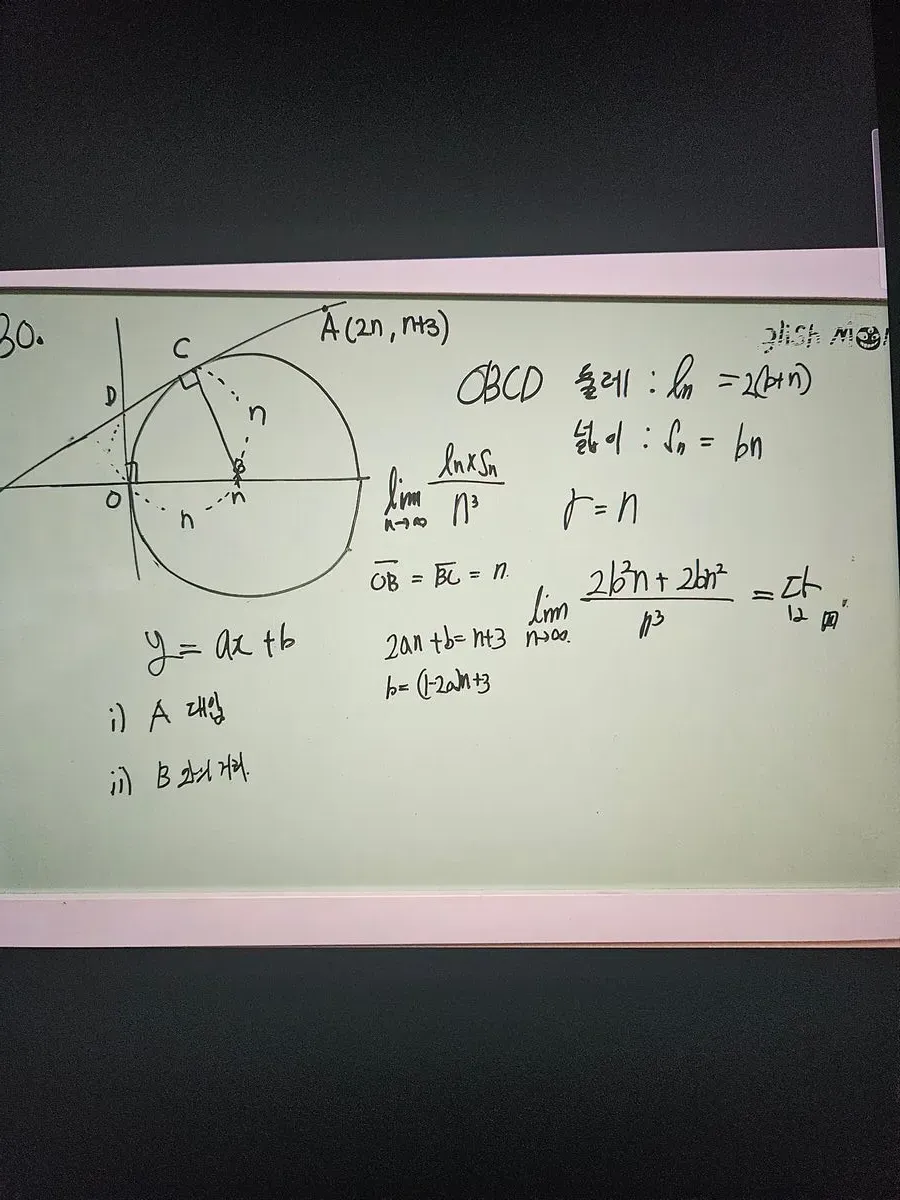 30.
A(2n, n+3)
C
D
n
B
O
n
n
OBCD 둘레 : ln = 2(b+n)
넓이 : Sn = bn
lim n→∞ ln×Sn / n³
r = n
OB = BC = n.
lim n→∞. 2b²n + 2bn² / n³ = 답
12
2an + b = n+3
b = (1-2a)n+3
y = ax + b
i) A 대입
ii) B 와의 거리.